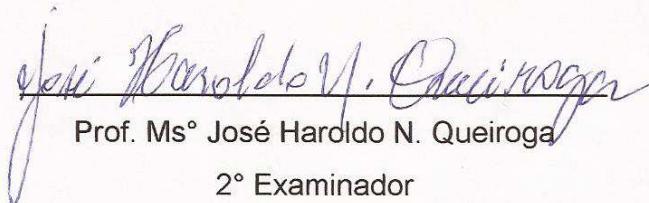 José Haroldo N. Queiroga
Prof. Ms° José Haroldo N. Queiroga
2° Examinador